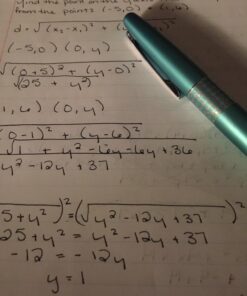 find the point on the
from the points (-5,0) + (1,6)
d = √(x₂-x₁)² +
(-5,0) (0,y)
√(0+5)² + (y-0)²
√25 + y²
1,6) (0,y)
(0-1)² + (y-6)²
√1 + y²-6y-6y+36
y²-12y+37
5+y²)² = (√y²-12y+37)²
25+y² = y²-12y+37
-12 = -12y
y = 1